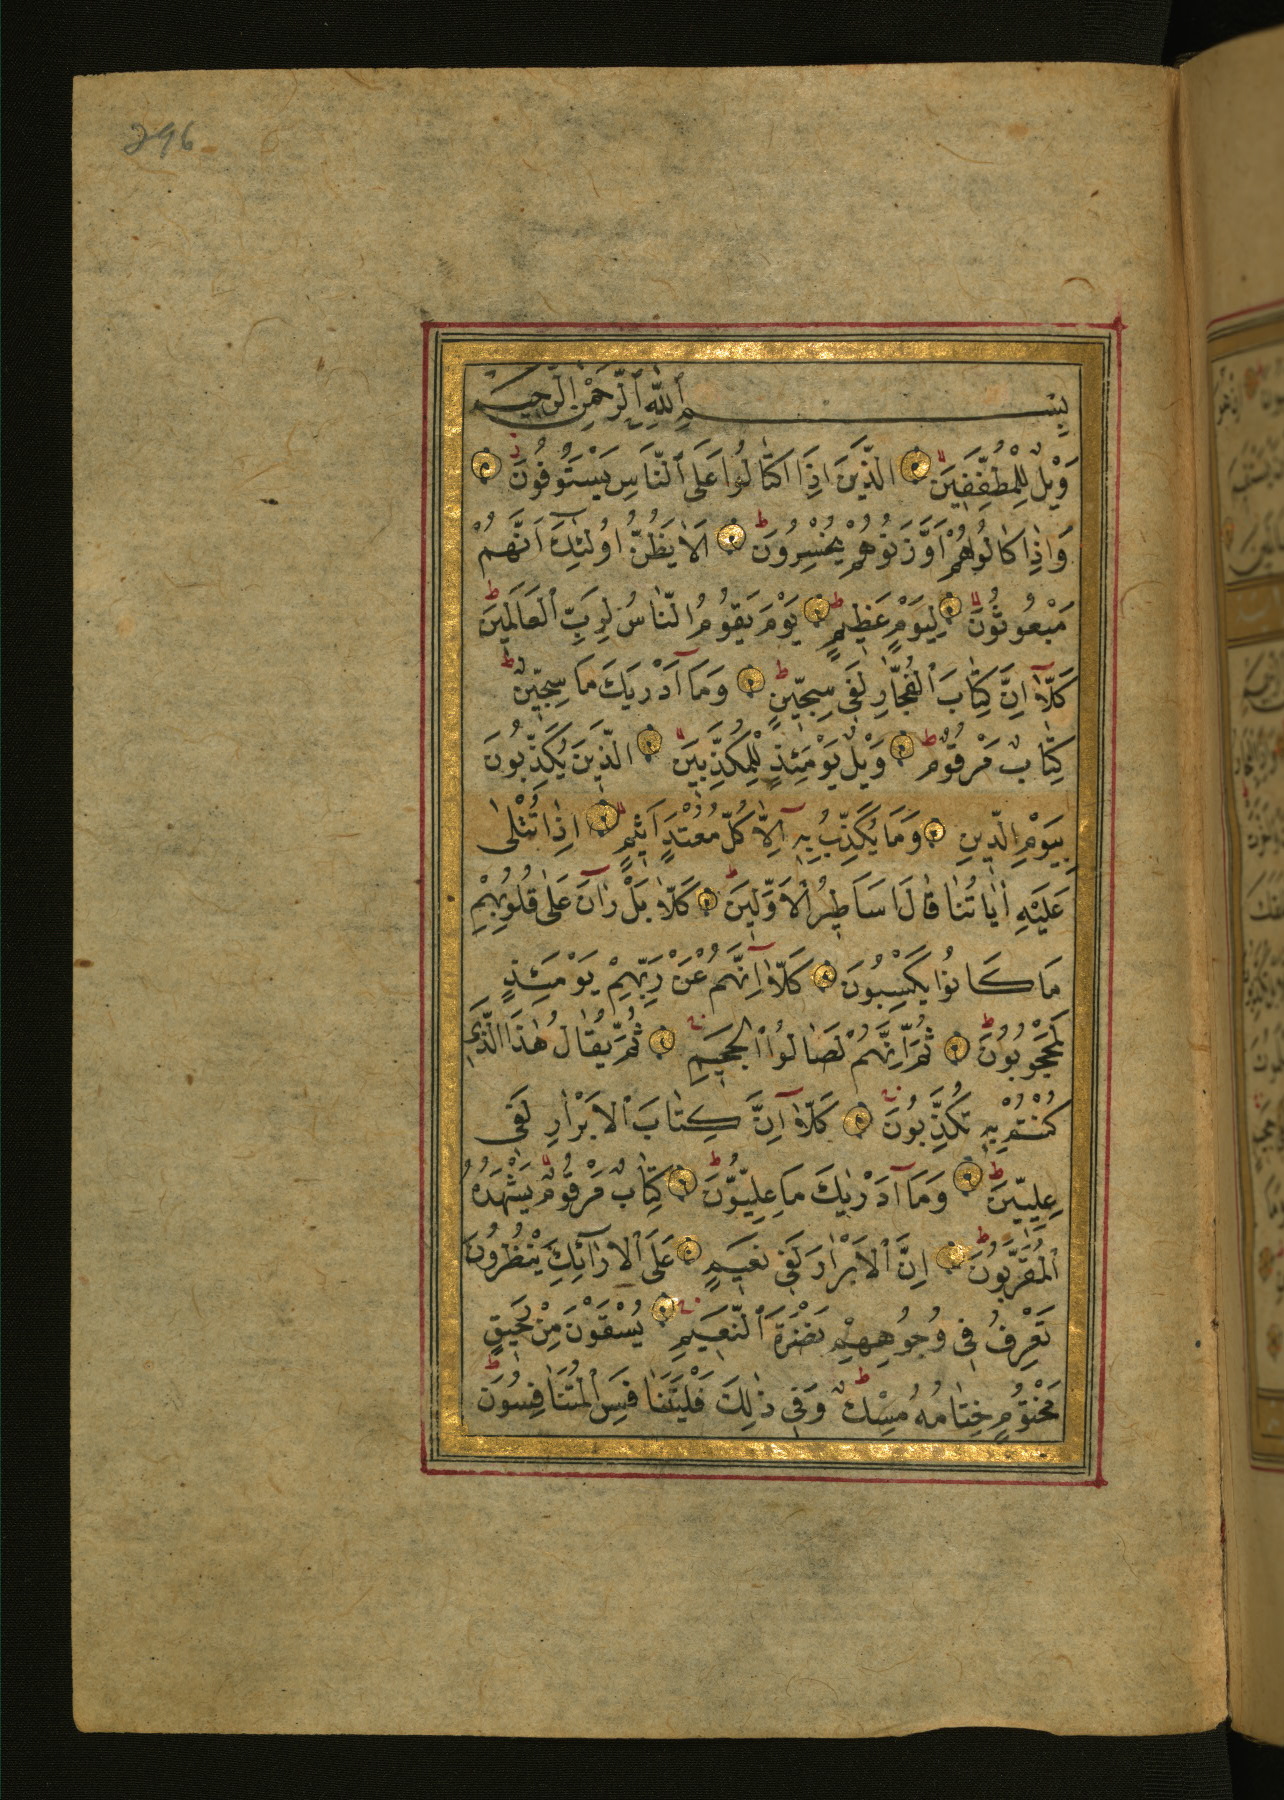 296
بِسْمِ ٱللّٰهِ ٱلرَّحْمٰنِ ٱلرَّحِيمِ
وَيْلٌ لِلْمُطَفِّفِينَ الَّذِينَ اِذَا اكْتَالُوا عَلَى ٱلنَّاسِ يَسْتَوْفُونَ
وَاِذَا كَالُوهُمْ اَوْ وَزَنُوهُمْ يُخْسِرُونَ اَلَا يَظُنُّ اُولٰئِكَ اَنَّهُمْ
مَبْعُوثُونَ لِيَوْمٍ عَظِيمٍ يَوْمَ يَقُومُ النَّاسُ لِرَبِّ ٱلْعَالَمِينَ
كَلَّا اِنَّ كِتَابَ ٱلْفُجَّارِ لَفِى سِجِّينٍ وَمَا اَدْرٰيكَ مَا سِجِّينٌ
كِتَابٌ مَرْقُومٌ وَيْلٌ يَوْمَئِذٍ لِلْمُكَذِّبِينَ الَّذِينَ يُكَذِّبُونَ
بِيَوْمِ الدِّينِ وَمَا يُكَذِّبُ بِهِ اِلَّا كُلُّ مُعْتَدٍ اَثِيمٍ اِذَا تُتْلٰى
عَلَيْهِ اٰيَاتُنَا قَالَ اَسَاطِيرُ ٱلْاَوَّلِينَ كَلَّا بَلْ رَانَ عَلٰى قُلُوبِهِمْ
مَا كَانُوا يَكْسِبُونَ كَلَّا اِنَّهُمْ عَنْ رَبِّهِمْ يَوْمَئِذٍ
لَمَحْجُوبُونَ ثُمَّ اِنَّهُمْ لَصَالُوا ٱلْجَحِيمِ ثُمَّ يُقَالُ هٰذَا الَّذِى
كُنْتُمْ بِهِ تُكَذِّبُونَ كَلَّا اِنَّ كِتَابَ ٱلْاَبْرَارِ لَفِى
عِلِّيِّينَ وَمَا اَدْرٰيكَ مَا عِلِّيُّونَ كِتَابٌ مَرْقُومٌ يَشْهَدُهُ
ٱلْمُقَرَّبُونَ اِنَّ ٱلْاَبْرَارَ لَفِى نَعِيمٍ عَلَى ٱلْاَرَائِكِ يَنْظُرُونَ
تَعْرِفُ فِى وُجُوهِهِمْ نَضْرَةَ ٱلنَّعِيمِ يُسْقَوْنَ مِنْ رَحِيقٍ
مَخْتُومٍ خِتَامُهُ مِسْكٌ وَفِى ذٰلِكَ فَلْيَتَنَافَسِ ٱلْمُتَنَافِسُونَ